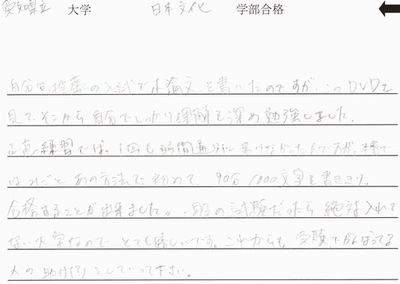 愛知県立 大学 日本文化 学部合格
自分は推薦の入試で小論文を書いたのですが、このDVDを
見て、そこから自分でしっかり理解を深め勉強しました。
正直練習では、1回も時間通りに
あの方法で初めて、90分/800文字を書ききり、
合格することが出来ました。一般の試験だったら絶対入れて
ない大学なのでとても嬉しいです。これからも受験でがんばってる
人の助け(?)をしていって下さい。